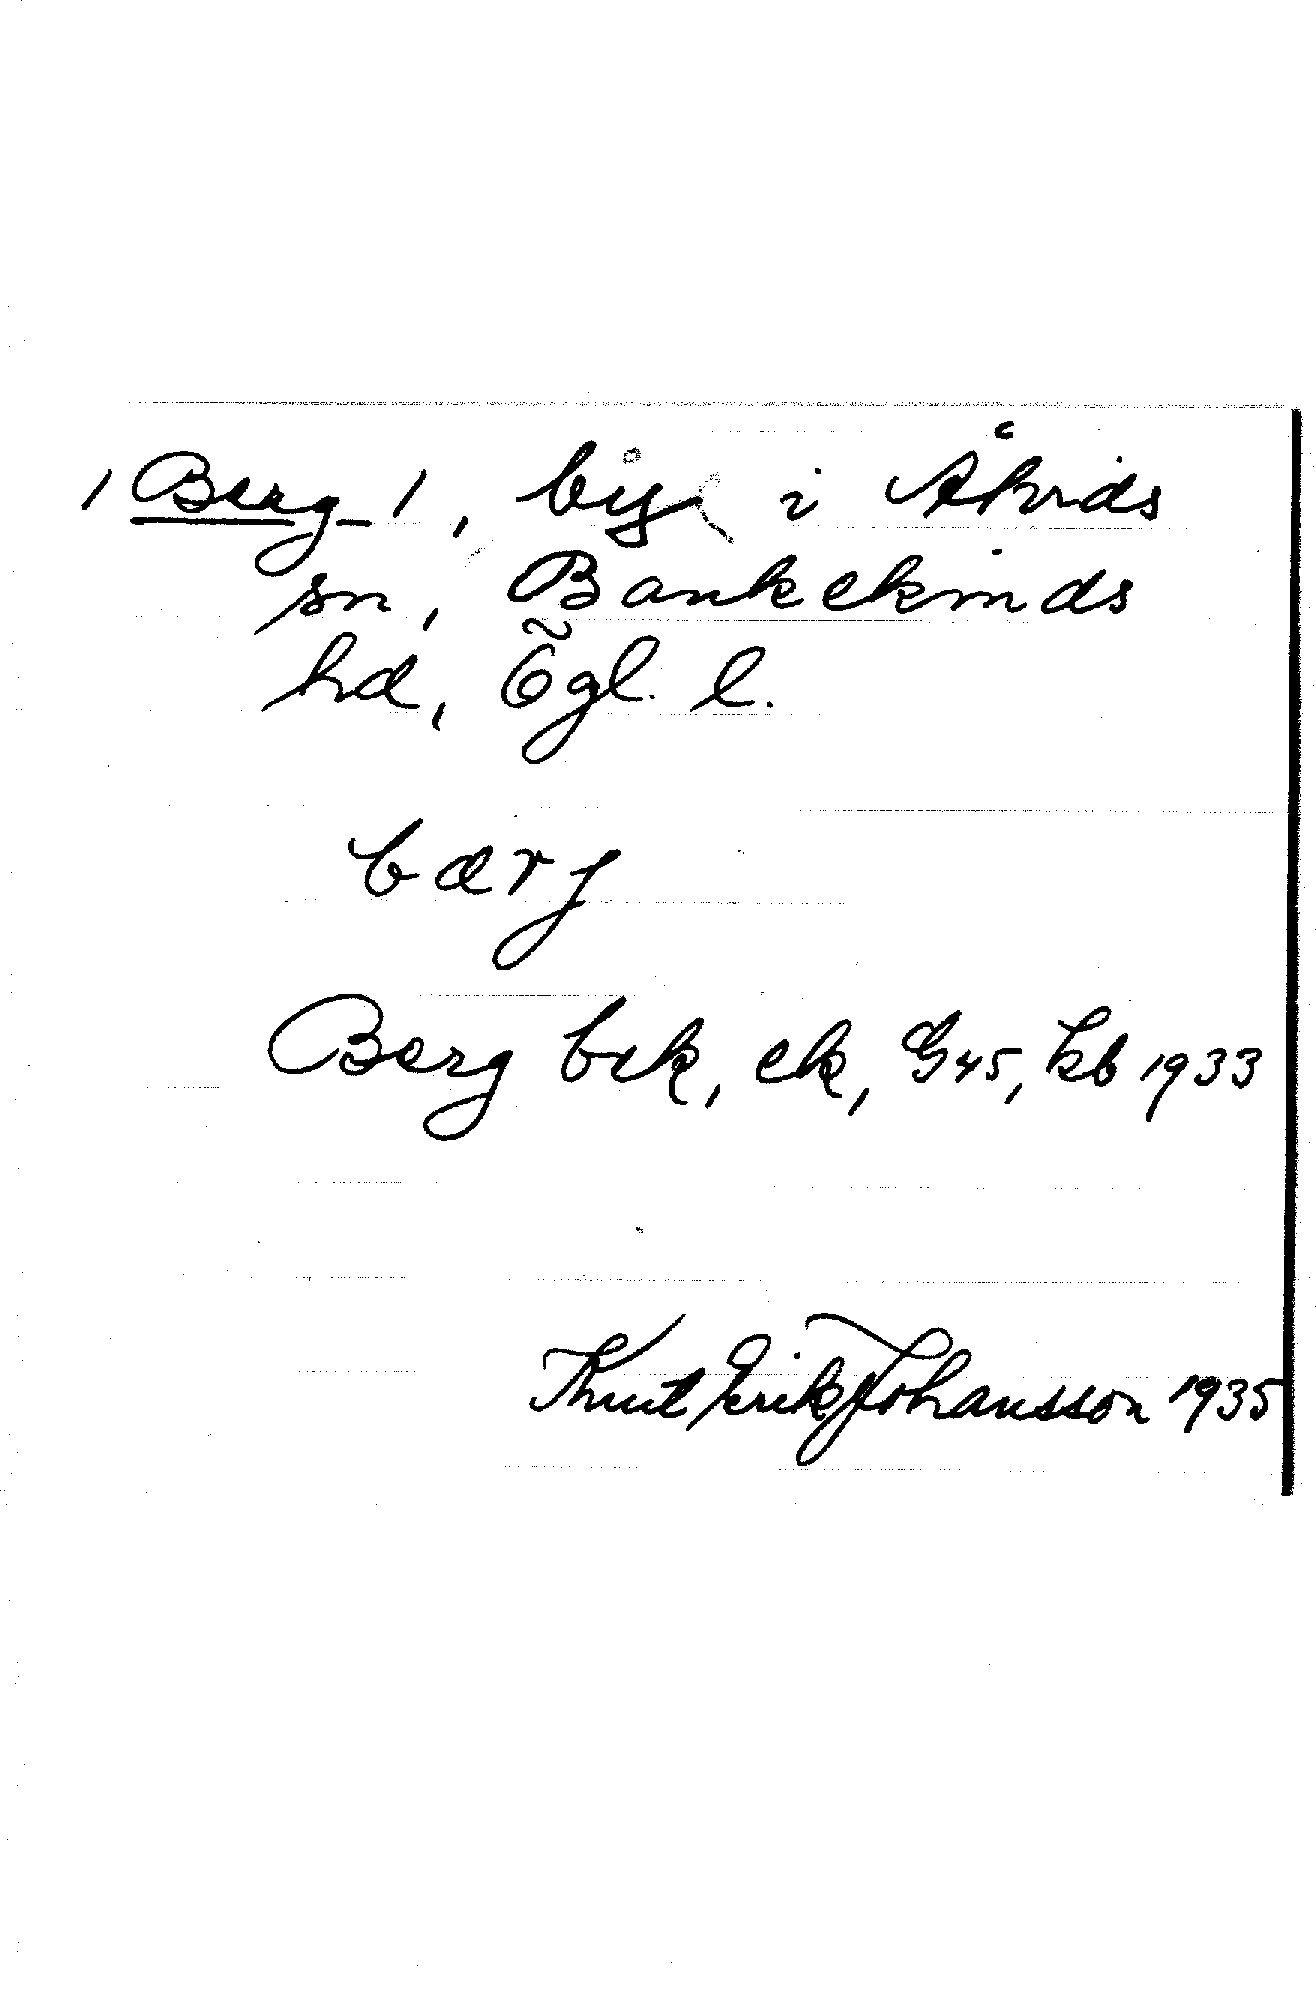 / Berg /, by i Åtvids
sn, Bankekinds
hd, Ögl. l.
bærj
Berg bek, ek, G45, kb 1933
Knut Erik Johansson 1935